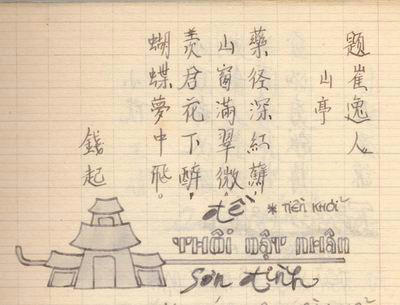 題崔逸人
山亭
藥径深紅蘚，
山窗滿翠微。
羨君花下醉，
蝴蝶夢中飛。
錢起
đề * TIỀN KHỞI
THÔI DẬT NHÂN
Sơn đình